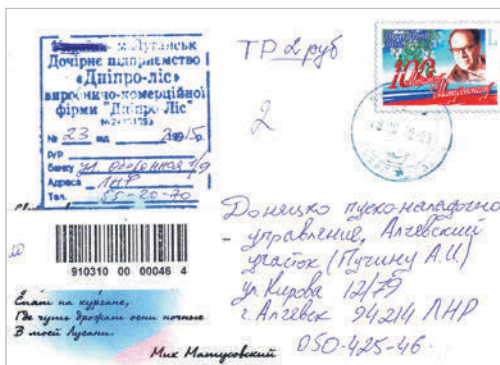 м. Луганськ
Дочірне підприємство
«Дніпро-ліс»
виробничо-комерційної
фірми "Дніпро Ліс"
№ 23 від 2015р.
рур
банку ул. Оборонная 1/9
Адреса ЛНР
Тел. 55-20-70
910310 00 00046 4
Спят на кургане,
Где чуть дрожат огни ночные
В моей Лугани.
Мих Матусовский
ТР 2 руб
2
100
Матусовскому
Донецко пуско-наладочно
- управление, Алчевский
участок (Пучину А.И)
ул Кирова 12/79
г. Алчевск 94214 ЛНР
050-425-46.